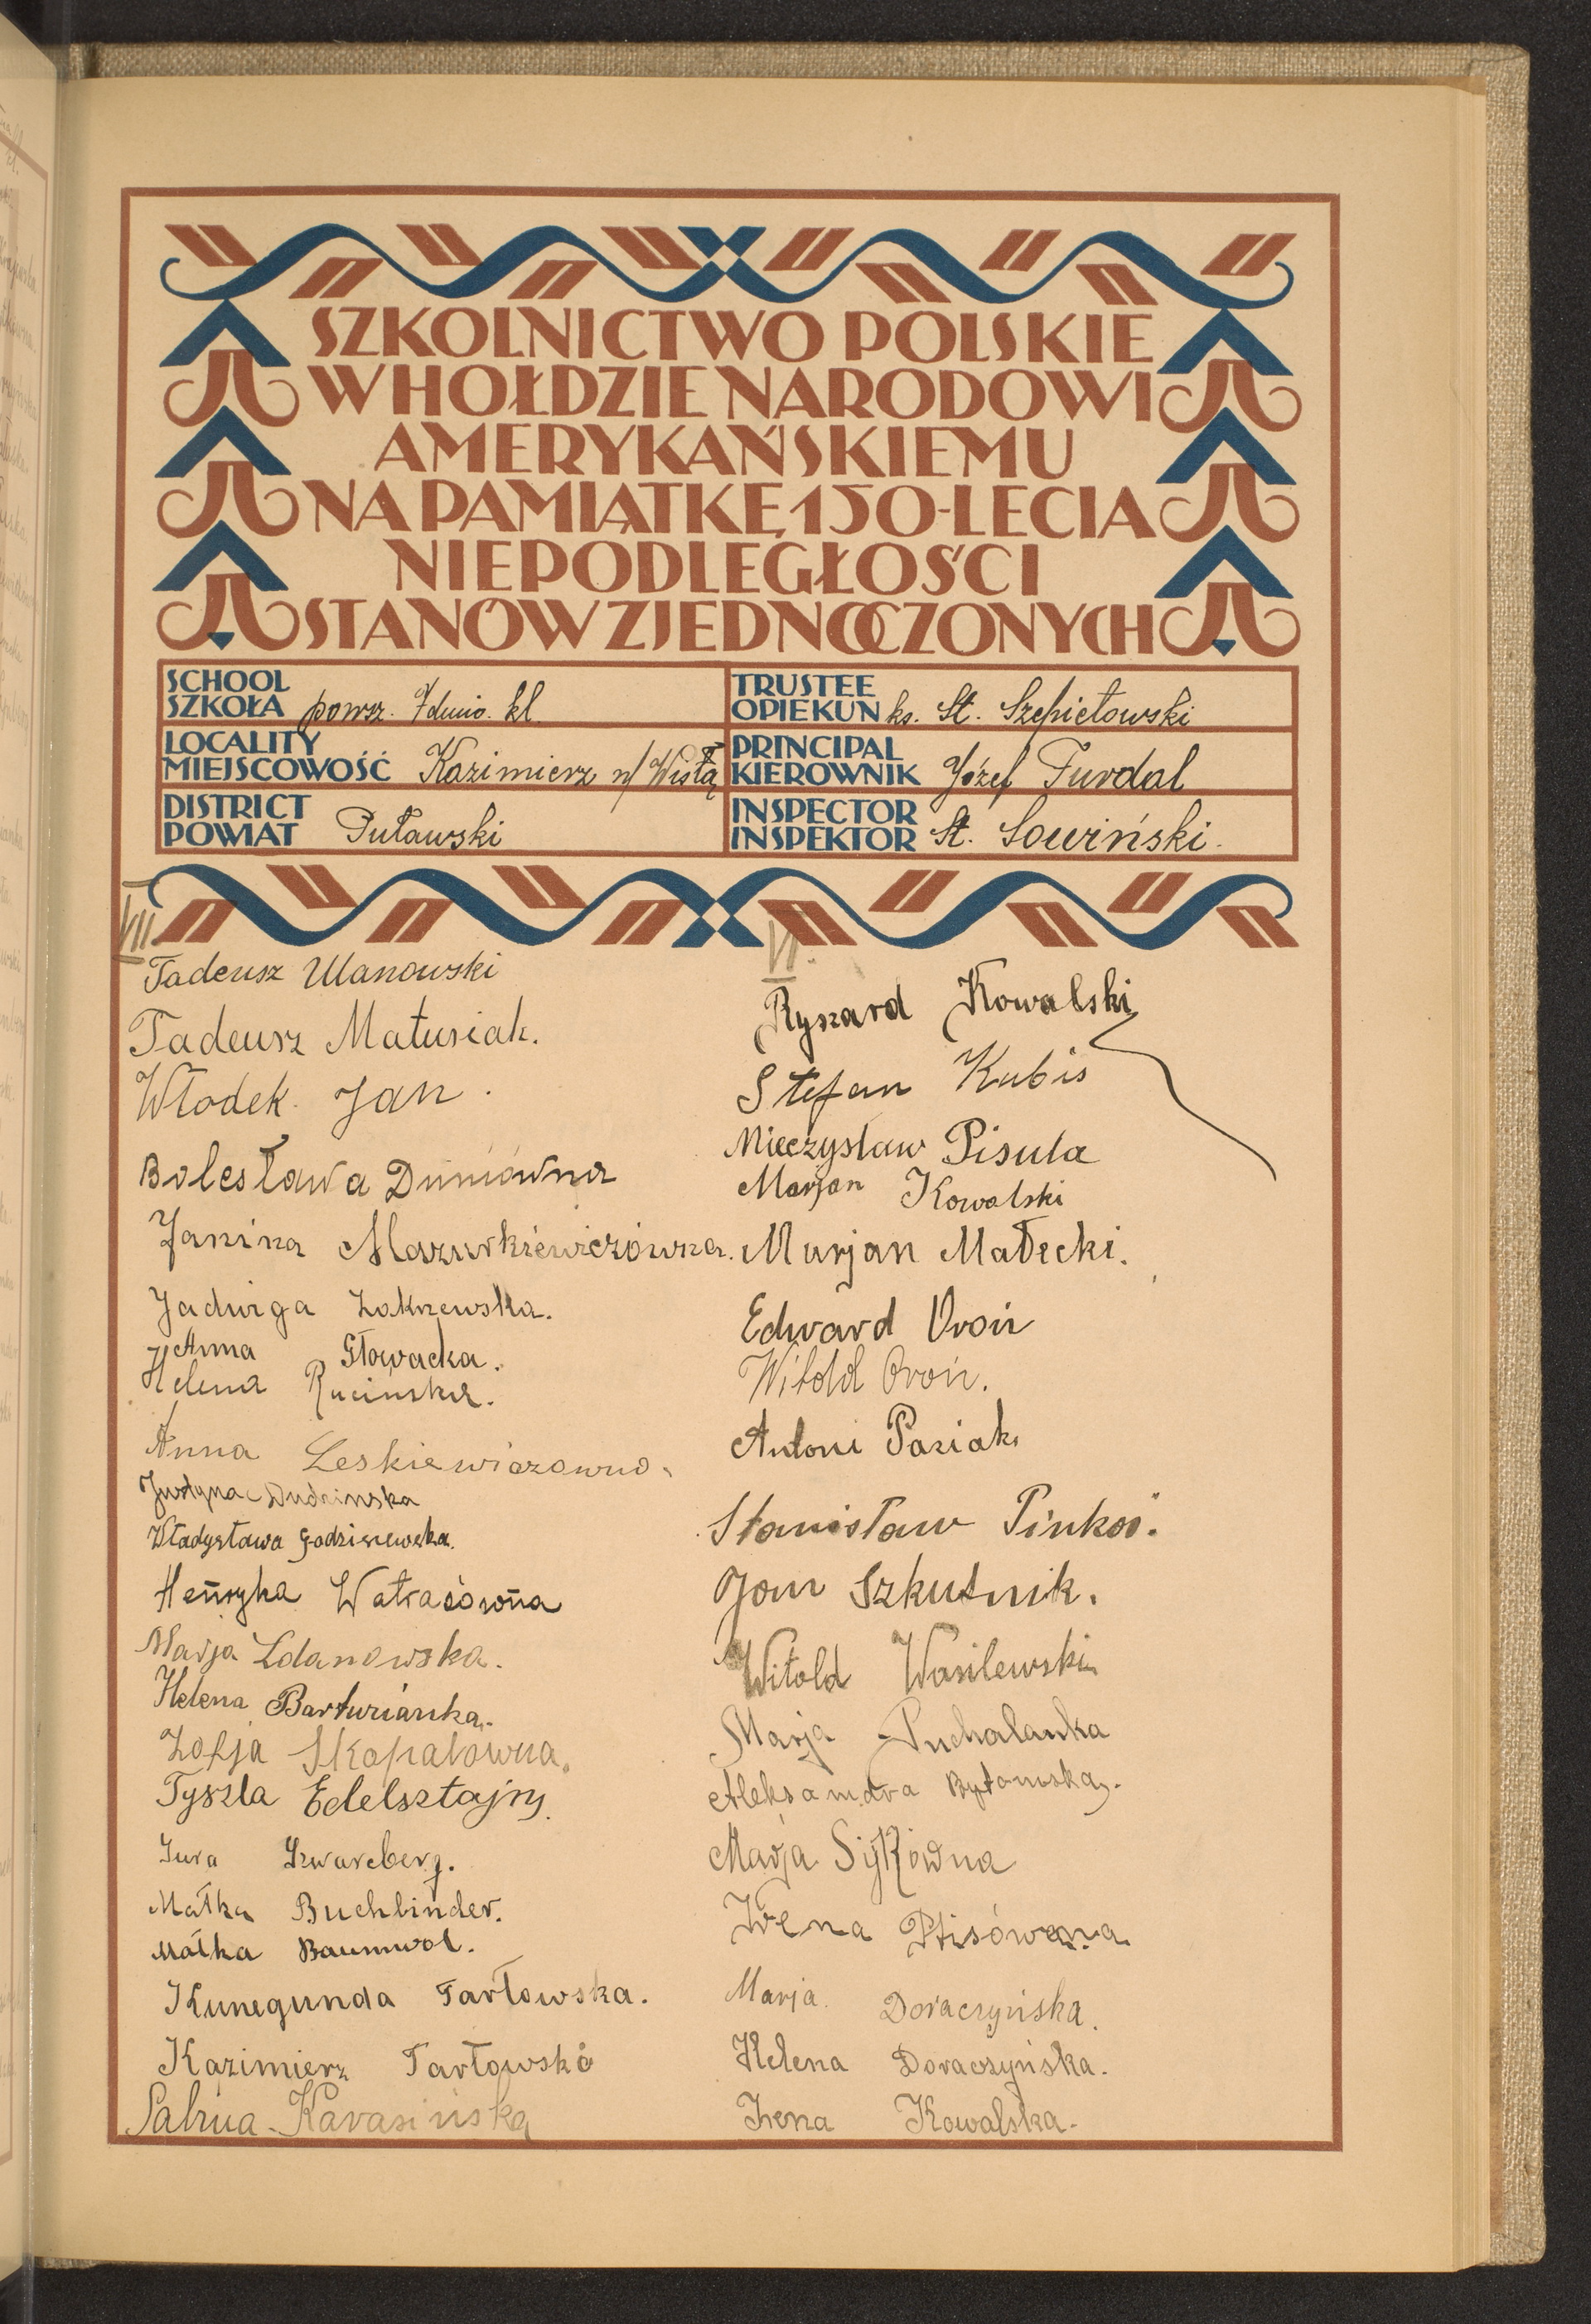 SZKOLNICTWO POLSKIE
W HOŁDZIE NARODOWI
AMERYKAŃSKIEMU
NA PAMIĄTKĘ 150-LECIA
NIEPODLEGŁOŚCI
STANÓW ZJEDNOCZONYCH
SCHOOL
SZKOŁA powsz. 7dmio. kl.
LOCALITY
MIEJSCOWOŚĆ Kazimierz n/Wisłą
DISTRICT
POWIAT Puławski
TRUSTEE
OPIEKUN ks. St. Szepietowski
PRINCIPAL
KIEROWNIK Józef Furdal
INSPECTOR
INSPEKTOR St. Sowiński.
VII.
Tadeusz Ulanowski
Tadeusz Matusiak.
Włodek. Jan.
Bolesława Duniówna
Janina Mazurkiewiczówna.
Jadwiga Zakrzewska.
Anna Głowacka.
Helena Rucińska.
Anna Leskiewiczowna.
Justyna Dudzinska
Władysława Godziszewska.
Henryka Watrasówna
Marja Zdanowska.
Helena Barturianka.
Zofja Skopalówna.
Tyszla Edelsztajn
Jura Szwarcberg.
Matka Buchbinder.
Małka Baumwol.
Kunegunda Tarłowska.
Kazimierz Tarłowski
Karasińska
VI.
Ryszard Kowalski
Stefan Kubis
Mieczysław Pisula
Marjan Kowalski
Marjan Małecki.
Edward Oroń
Witold Oroń.
Antoni Paziak
Stanisław Pinkos.
Jan Szkutnik.
Witold Wasilewski
Marja Puchalanka
Aleksandra Bytomska.
Marja
Irena
Marja Doraczyńska.
Helena Doraczyńska.
Irena Kowalska.